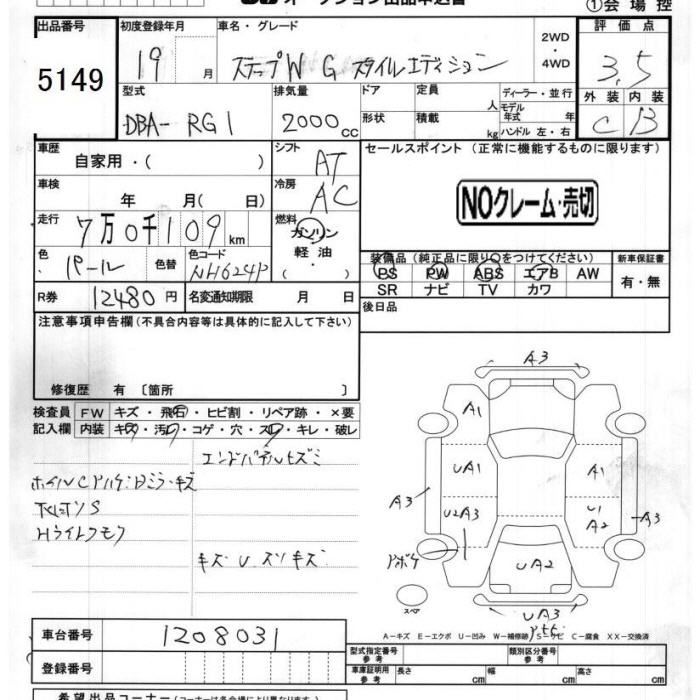 ①会場控
出品番号 初度登録年月 車名・グレード 2WD ・ 4WD 評価点
5149 19 月 ステップW G スタイルエディション 3,5
型式 排気量 ドア 定員 人 ディーラー・並行 外装 内装
DBA- RG1 2000cc 形状 積載 kg モデル年式 年 ハンドル 左・右 C B
車歴 自家用・( ) シフト AT セールスポイント (正常に機能するものに限ります)
車検 年 月( 日) 冷房 AC
NOクレーム・売切
走行 7万0千109km 燃料 ガソリン ・ 軽油 ・ ( )
色 パール 色替 色コード NH624P
装備品(純正品に限り○をつけてください) 新車保証書
PS PW ABS エアB AW 有・無
SR ナビ TV カワ
R券 12480円 名変通知期限 月 日
後日品
注意事項申告欄(不具合内容等は具体的に記入して下さい)
修復歴 有 〔箇所 〕
検査員 FW キズ・飛石・ヒビ割・リペア跡・×要
記入欄 内装 キズ・汚レ・コゲ・穴・スレ・キレ・破レ
キズ
下回りS
HライトクモリA3
A1
UA1 A1
A3 U2A3 U1 A2 A3
UA2
スペア
UA3
A−キズ E−エクボ U−凹み W−補修跡 S−サビ C−腐食 XX−交換済
車台番号 1208031
登録番号
型式指定番号 参考 類別区分番号 参考
車庫証明用 参考 長さ cm 幅 cm 高さ cm
希望出品コーナー